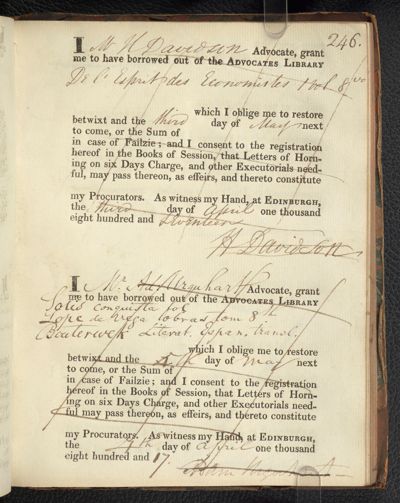 246.
I Mr H Davidson Advocate, grant
me to have borrowed out of the ADVOCATES LIBRARY
De L'Esprit des Economistes 1 vol 8vo
which I oblige me to restore
betwixt and the third day of May next
to come, or the Sum of
in case of Failzie; and I consent to the registration
hereof in the Books of Session, that Letters of Horn-
ing on six Days Charge, and other Executorials need-
ful, may pass thereon, as effeirs, and thereto constitute
my Procurators. As witness my Hand, at EDINBURGH,
the third day of April one thousand
eight hundred and seventeen
H Davidson
I Mr Ad Urquhart Advocate, grant
me to have borrowed out of the ADVOCATES LIBRARY
Solis conquista
Lope de Vega obras tom 8th
Bouterwek Literat. Espan. transl.
which I oblige me to restore
betwixt and the day of May next
to come, or the Sum of
in case of Failzie; and I consent to the registration
hereof in the Books of Session, that Letters of Horn-
ing on six Days Charge, and other Executorials need-
ful may pass thereon, as effeirs, and thereto constitute
my Procurators. As witness my Hand, at EDINBURGH,
the day of April one thousand
eight hundred and 17.
Adam Urquhart